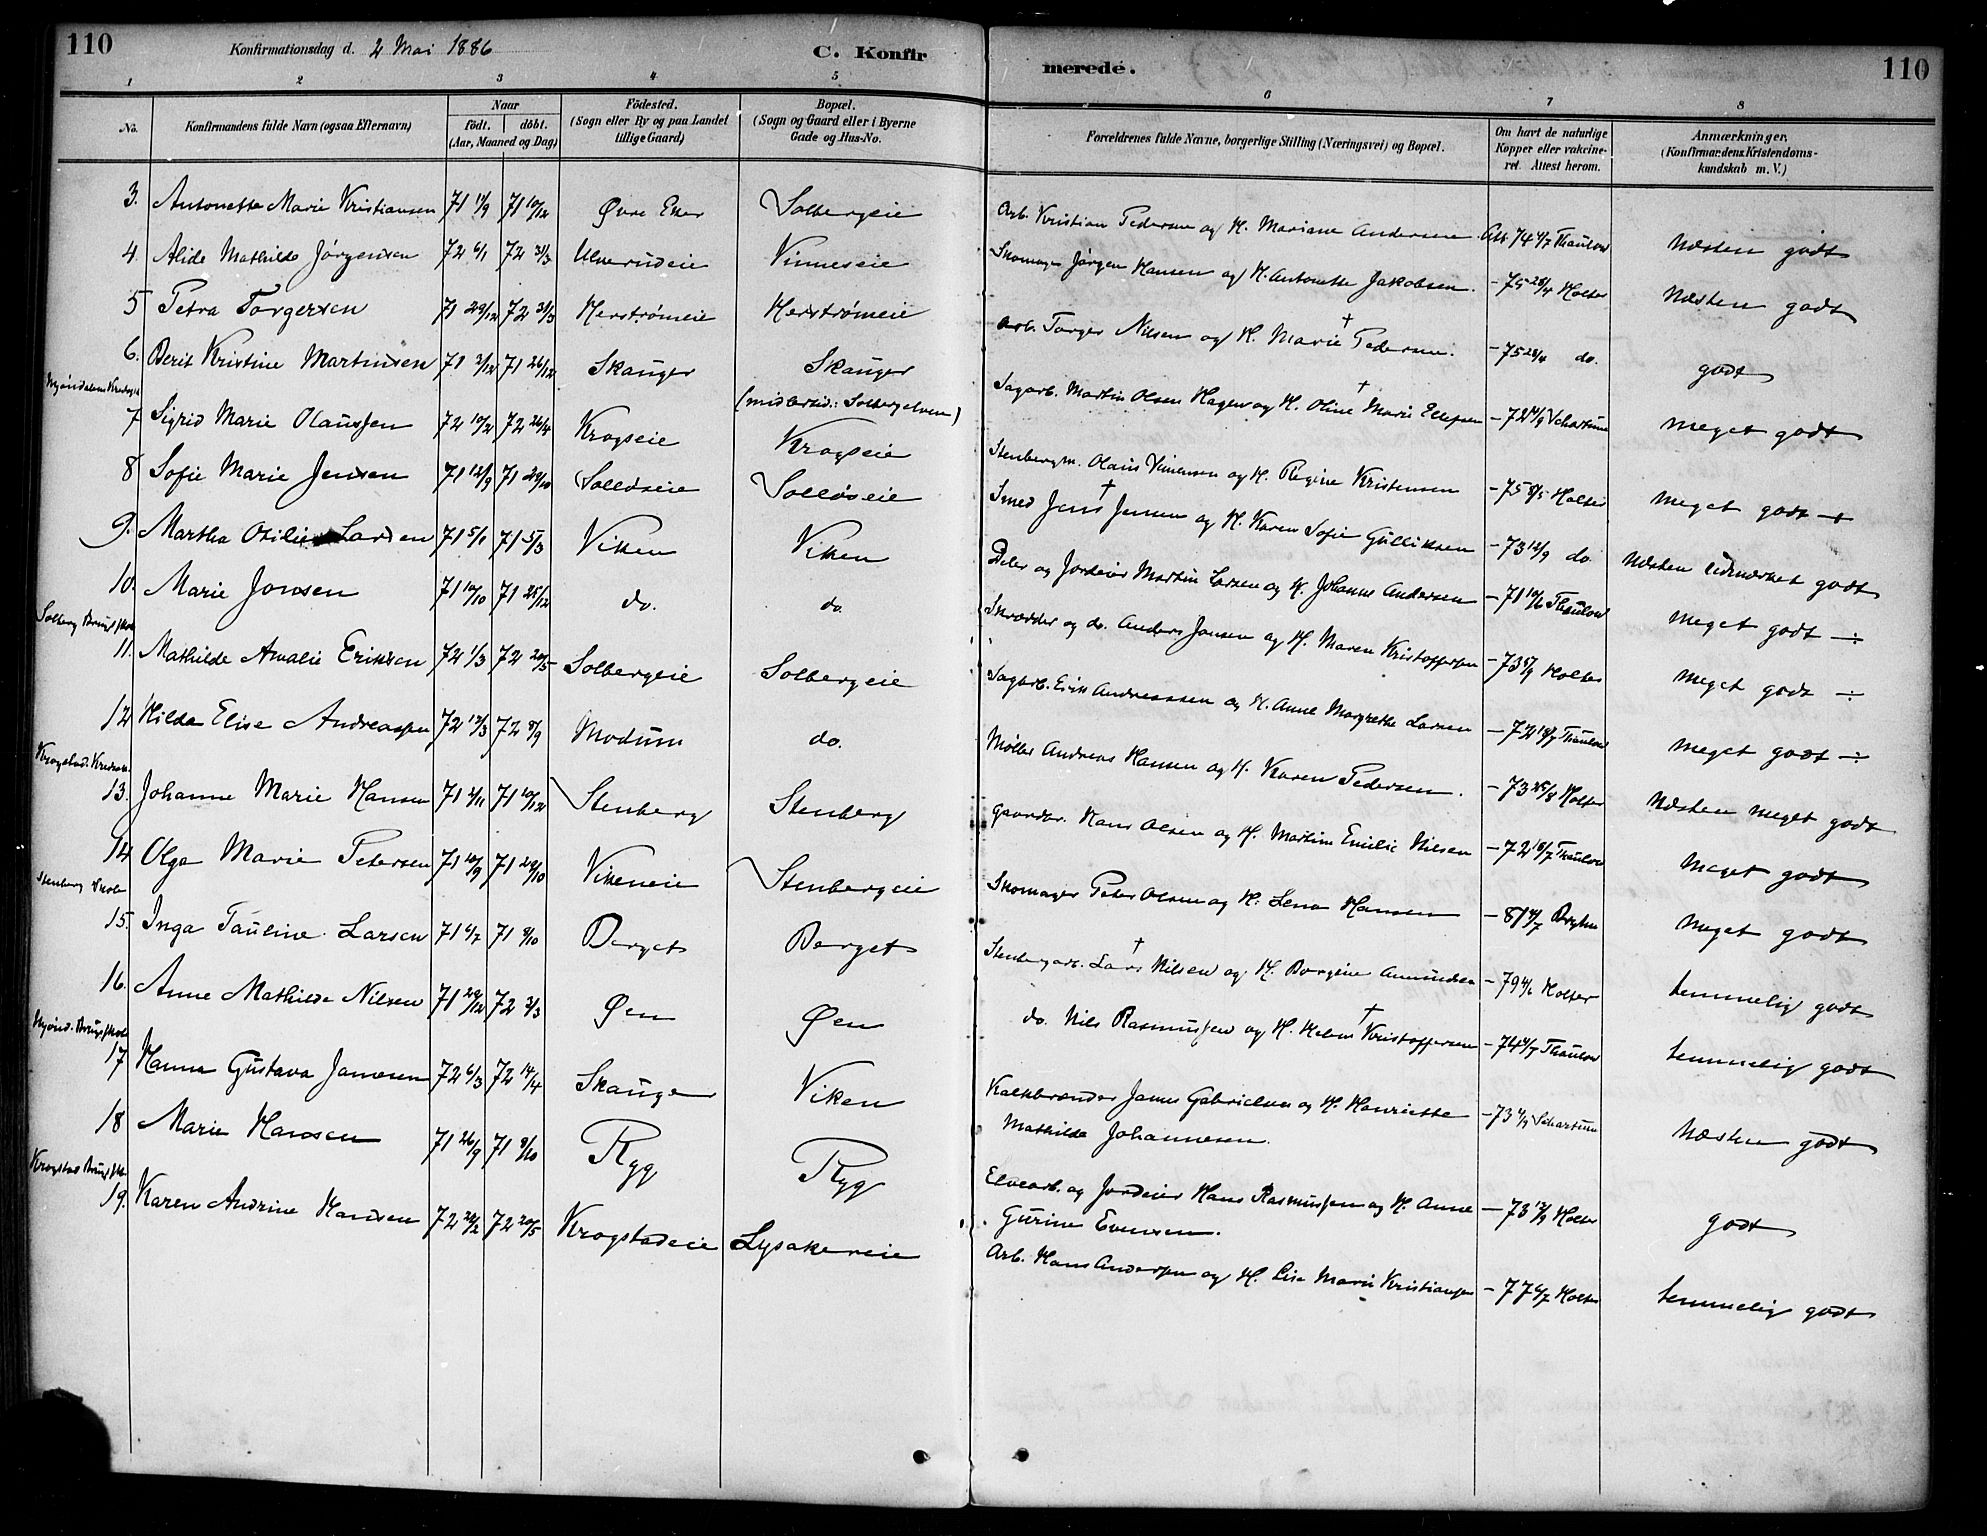 110
Konfirmationsdag d. 2 Mai 1886
C. Konfir
merede.
110
1 2 3 4 5 6 7 8
No.
Konfirmandens fulde Navn (ogsaa Efternavn)
Naar
födt. döbt.
(Aar, Maaned og Dag)
Födested.
(Sogn eller By og paa Landet
tillige Gaard)
Bopæl.
(Sogn og Gaard eller i Byerne
Gade og Hus-No.
Forældrenes fulde Navne, borgerlige Stilling (Næringsvei) og Bopæl.
Om havt de naturlige
Kopper eller vakcine-
ret. Attest herom.
Anmærkninger,
(Konfirmandens Kristendoms-
kundskab m. V.)
3. Antonette Marie Kristiansen 71 1/9 71 10/12 Øvre Eker Solbergeie Arb. Kristian Pedersen og H. Mariane Andersen. Att. 74 4/7 Thaulow Næsten godt
4. Alide Mathilde Jørgensen 72 6/1 72 31/3 Ulverudeie Vinneseie Skomager Jørgen Hansen og H. Antonette Jakobsen. - 75 28/4 Holter Næsten godt
5 Petra Torgersen 71 29/12 72 31/3 Herstrømeie Herstrømeie Arb. Torger Nilsen og H. Marie † Pedersen. - 75 28/4 do. godt
6. Berit Kristine Martinsen 71 2/12 71 26/12 Skauger Skauger
(midlertid.: Solbergelven) Sagarb. Martin Olsen Hagen og H. Oline † Marie Ellefsen - 72 4/9 Schartum meget godt
7 Sigrid Marie Olaussen 72 10/2 72 26/4 Krogseie Krogseie Stenbergm. Olaus Simensen og H. Regine Kristensen - 75 5/5 Holter meget godt +
8 Sofie Marie Jensen 71 12/9 71 29/10 Solløseie Solløseie Smed Jens † Jensen og H. Karen Sofie Gulliksen - 73 12/9 do. Næsten udmærket godt
9. Martha Otilie Larsen 71 5/1 71 5/3 Viken Viken Peler og Jordeier Martin Larsen og H. Johanne Andersen - 71 10/6 Thaulow meget godt ÷
10. Marie Jonsen 71 10/10 71 25/12 do. do. Skrædder og do. Anders Jonsen og H. Maren Kristoffersen - 73 5/9 Holter meget godt ÷
Solberg Brugsskole
11. Mathilde Amalie Eriksen 72 1/3 72 20/5 Solbergeie Solbergeie Sagarb. Erik Andreassen og H. Anne Margrethe Larsen - 72 18/7 Thaulow meget godt ÷
12 Hilda Elise Andreassen 72 13/3 72 8/9 Modum do. Møller Andreas Hansen og H. Karen Pedersen. - 73 25/8 Holter Næsten meget godt
13. Johanne Marie Hansen 71 2/11 71 10/12 Stenberg Stenberg Gaardbr. Hans Olsen og H. Martine Emilie Nilsen - 72 18/7 Thaulow meget godt
14 Olga Marie Petersen 71 10/9 71 29/10 Vikeneie Stenbergeie Skomager Peter Olsen og H. Lena Hansen - 81 4/7 Bryhn meget godt
Stenberg Skole
15. Inga Pauline Larsen 71 6/7 71 8/10 Berget Berget Stenbergarb. Lars † Nilsen og H. Borgine Amundsen - 79 4/6 Holter temmelig godt
16. Anne Mathilde Nilsen 71 29/12 72 3/3 Øen Øen do. Nils Rasmussen og H. Helene † Kristoffersen - 74 4/7 Thaulow temmelig godt
17 Hanna Gustava Jamesen 72 6/3 72 14/4 Skauger Viken Kalkbrænder James Gabrielsen og H. Henriette
Mathilde Johannesen. - 73 4/9 Schartum Næsten godt
18 Marie Hansen 71 26/9 71 8/10 Ryg Ryg Elvearb. og Jordeier Hans Rasmussen og H. Anne
Gurine Evensen. - 73 12/9 Holter godt
19. Karen Andrine Hansen 72 24/2 72 20/5 Krogstadeie Lysakereie Arb. Hans Andersen og H. Lise Marie Kristiansen - 77 4/7 Holter temmelig godt